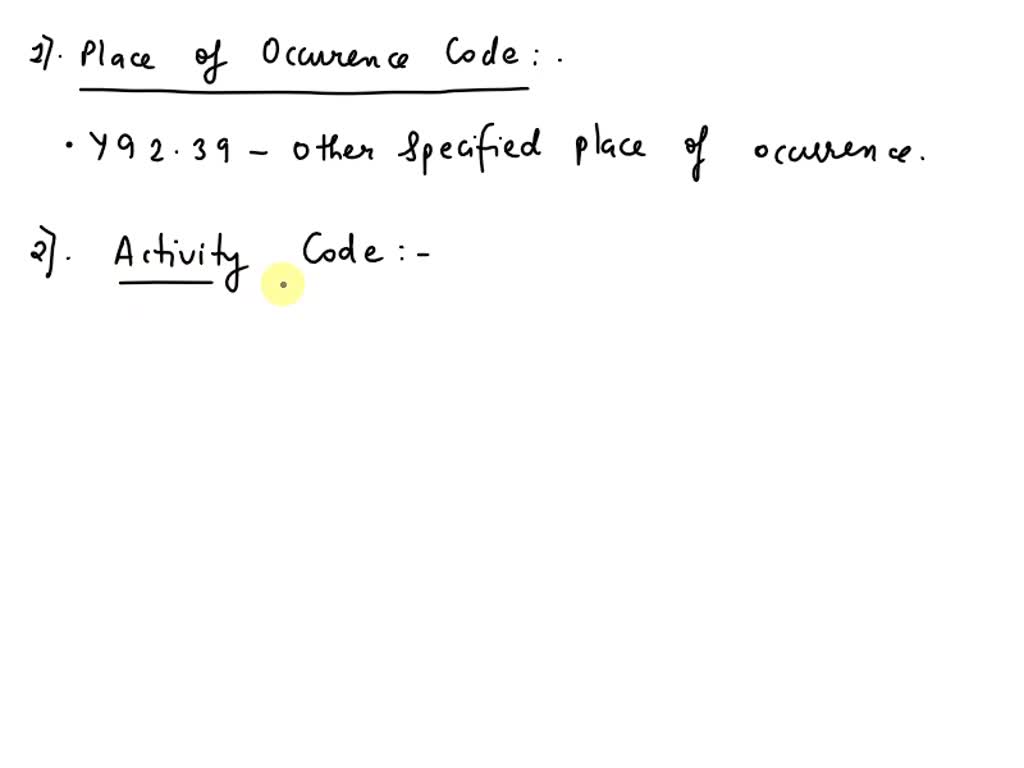 1). Place of Occurence Code : .
• Y92.39 - other specified place of ocurrence.
2). Activity Code : -